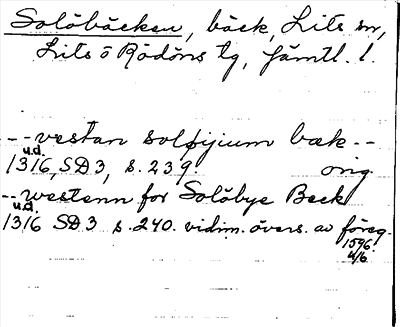 Solöbäcken, bäck, Lits sn,
Lits o Rödöns tg, Jämtl. l.
--vestan solþijium bæk--
u.d.
1316, SD3, s. 239. orig.
--westenn for Solöbye Beck
u.d.
1316 SD3 s. 240. vidim. övers. av föreg.
1596.
4/6